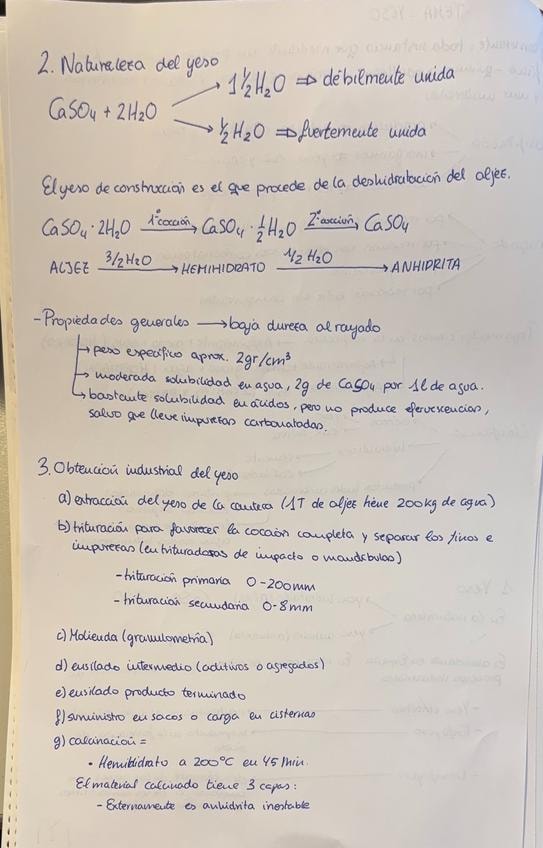 2. Naturaleza del yeso
CaSO4 + 2H2O → 1 1/2 H2O ⇒ débilmente unida
→ 1/2 H2O ⇒ fuertemente unida
El yeso de construcción es el que procede de la deshidratación del aljez.
CaSO4 · 2H2O 1ª cocción → CaSO4 · 1/2 H2O 2ª cocción → CaSO4
ALJEZ 3/2 H2O → HEMIHIDRATO 1/2 H2O → ANHIDRITA
- Propiedades generales → baja dureza al rayado
→ peso específico aprox. 2gr/cm3
→ moderada solubilidad en agua, 2g de CaSO4 por 1l de agua.
→ bastante solubilidad en ácidos, pero no produce efervescencias,
salvo que lleve impurezas carbonatadas.
3. Obtención industrial del yeso
a) extracción del yeso de la cantera (1T de aljez tiene 200kg de agua)
b) trituración para favorecer la cocción completa y separar los finos e
impurezas (en trituradoras de impacto o mandíbulas)
- trituración primaria 0-200mm
- trituración secundaria 0-8mm
c) Molienda (granulometría)
d) ensilado intermedio (aditivos o agregados)
e) ensilado producto terminado
f) suministro en sacos o carga en cisternas
g) calcinación =
• Hemihidrato a 200°C en 45 min.
El material calcinado tiene 3 capas:
- Externamente es anhidrita inestable